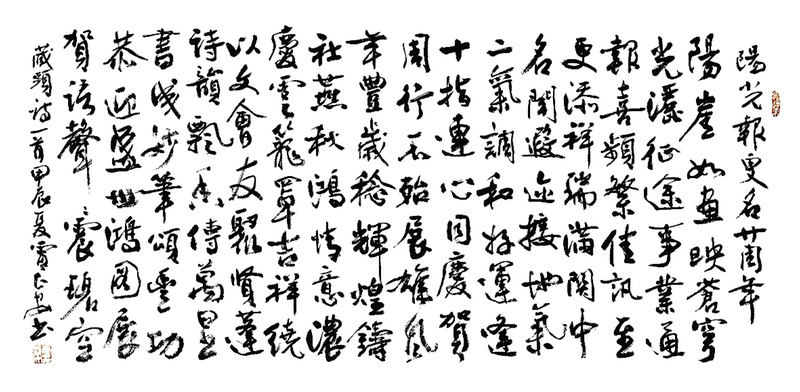 陽光報更名廿周年
陽崖如畫映蒼穹
光灑征途事業通
報喜頻繁佳訊至
更添祥瑞滿關中
名聞遐迩接地氣
二氣調和好運逢
十指連心同慶賀
周行不殆展雄風
年豐歲稔輝煌鑄
社燕秋鴻情意濃
慶雲籠罩吉祥繞
以文會友聚賢蓬
詩韻飄香傳萬里
書成妙筆頌豐功
恭迎盛世鴻圖展
賀語聲々震碧空
藏頭詩一首甲辰夏賈 書